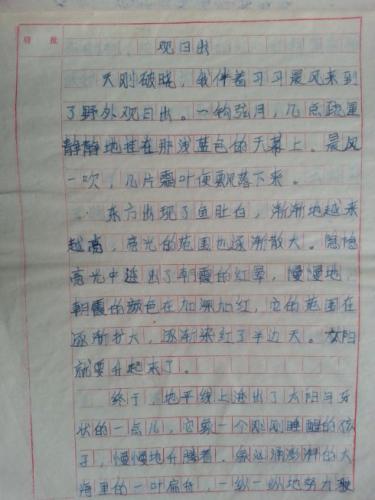 观日出
天刚破晓，我伴着习习晨风来到
了野外观日出。一钩弦月，几点疏星
静静地挂在那浅蓝色的天幕上。晨风
一吹，几片飘叶便飘落下来。
东方出现了鱼肚白，渐渐地越来
越高，亮光的范围也逐渐散大。隐隐
亮光中透出了朝霞的红晕，慢慢地，
朝霞的颜色在加深加红，它的范围在
逐渐扩大，逐渐染红了半边天。太阳
就要升起来了。
终于，地平线上迸出了太阳
状的一点儿，它象一个刚刚睡醒的孩
子，慢慢地升腾着，象汹涌澎湃的大
海里的一叶扁舟，一纵一纵地努力